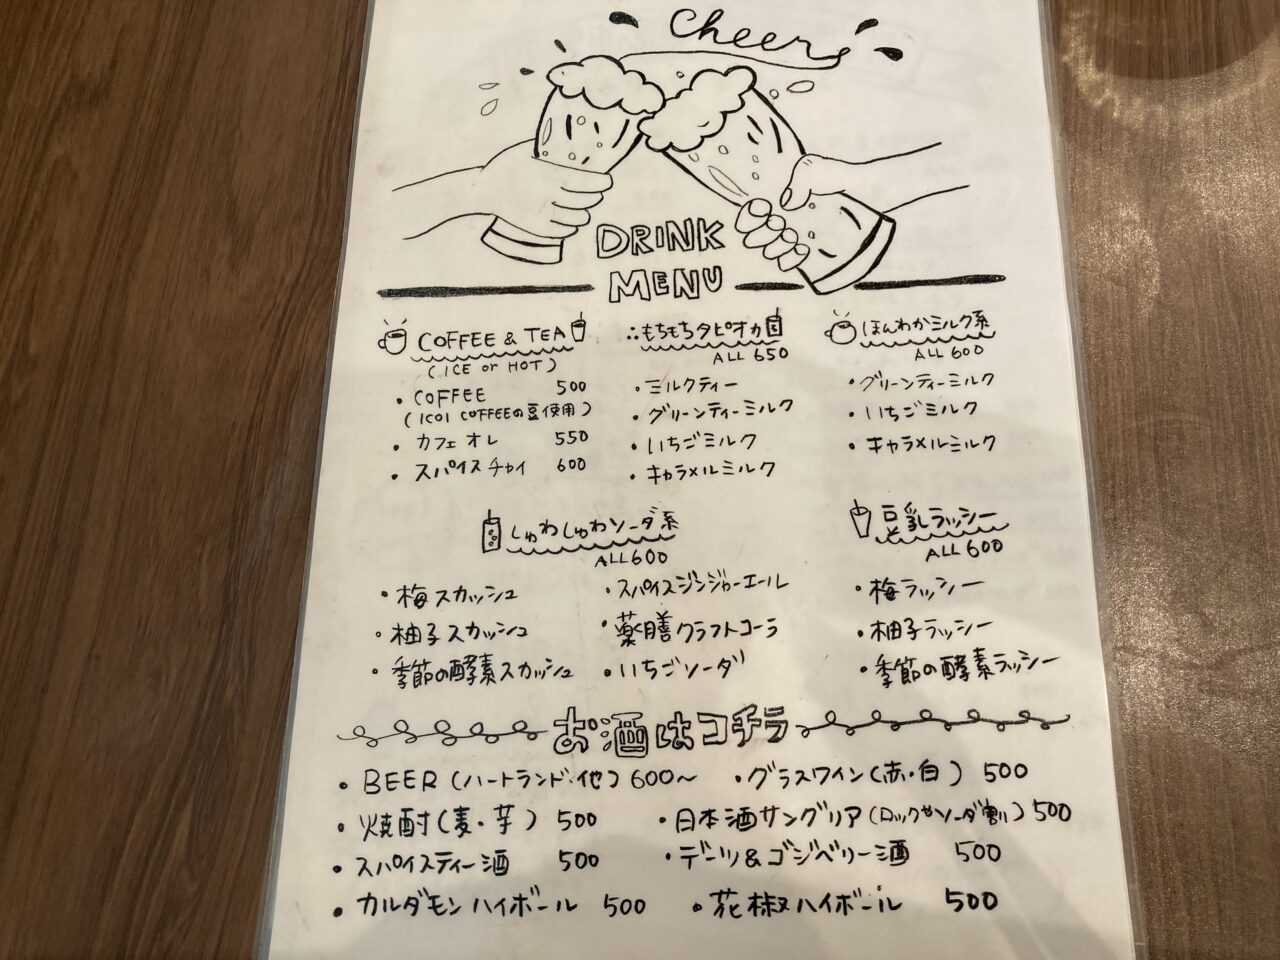 Cheers
DRINK
MENU
COFFEE & TEA
(ICE or HOT)
・COFFEE 500
(ICOI COFFEEの豆使用)
・カフェオレ 550
・スパイスチャイ 600
もちもちタピオカ
ALL 650
・ミルクティー
・グリーンティーミルク
・いちごミルク
・キャラメルミルク
ほんわかミルク系
ALL 600
・グリーンティーミルク
・いちごミルク
・キャラメルミルク
しゅわしゅわソーダ系
ALL 600
・梅スカッシュ
・柚子スカッシュ
・季節の酵素スカッシュ
・スパイスジンジャーエール
・薬膳クラフトコーラ
・いちごソーダ
豆乳ラッシー
ALL 600
・梅ラッシー
・柚子ラッシー
・季節の酵素ラッシー
お酒はコチラ
・BEER (ハートランド・他) 600〜
・グラスワイン(赤・白) 500
・焼酎(麦・芋) 500
・日本酒サングリア(ロックやソーダ割) 500
・スパイスティー酒 500
・デーツ&ゴジベリー酒 500
・カルダモンハイボール 500
・花椒ハイボール 500